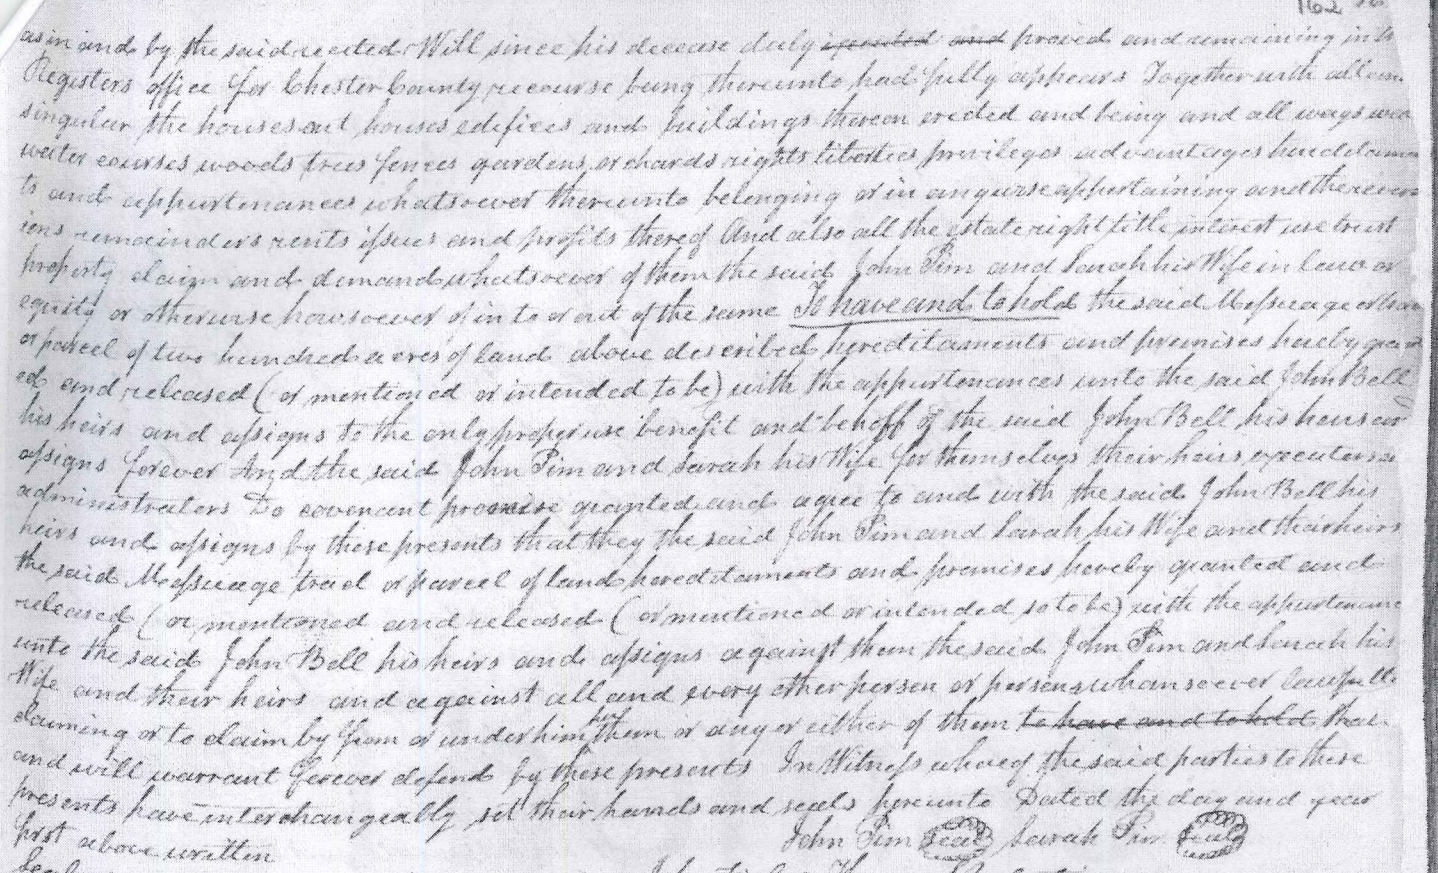 162
as in and by the said recited Will since his decease duly executed and proved and remaining in the
Registers office for Chester County recourse being thereunto had fully appears Together with all and
singular the houses out houses edifices and buildings thereon erected and being and all ways woo
water courses woods trees fences gardens orchards rights liberties privileges advantages hereditamen
ts and appurtenances whatsoever thereunto belonging or in anywise appertaining and the revers
ions remainders rents issues and profits thereof And also all the estate right title interest use trust
property claim and demand whatsoever of them the said John Pim and Sarah his Wife in law or
equity or otherwise howsoever of in to or out of the same To have and to hold the said Messuage or trac
or parcel of two hundred acres of land above described hereditaments and premises hereby grant
ed and released (or mentioned or intended to be) with the appurtenances unto the said John Bell
his heirs and assigns to the only proper use benefit and behoff of the said John Bell his heirs an
assigns forever And the said John Pim and Sarah his Wife for themselves their heirs executors
administrators Do covenant promise granted and agree to and with the said John Bell his
heirs and assigns by these presents that they the said John Pim and Sarah his Wife and their heirs
the said Messuage tract or parcel of land hereditaments and premises hereby granted and
released (or mentioned and released (or mentioned or intended so to be) with the appurtenance
unto the said John Bell his heirs and assigns against them the said John Pim and Sarah his
Wife and their heirs and against all and every other person or persons whomsoever lawfully
claiming or to claim by from or under him her them or any or either of them to have and to hold shall
and will warrant forever defend by these presents In Witness whereof the said parties to these
presents have interchangeably set their hands and seals hereunto Dated the day and year
first above written John Pim seal Sarah Pim seal